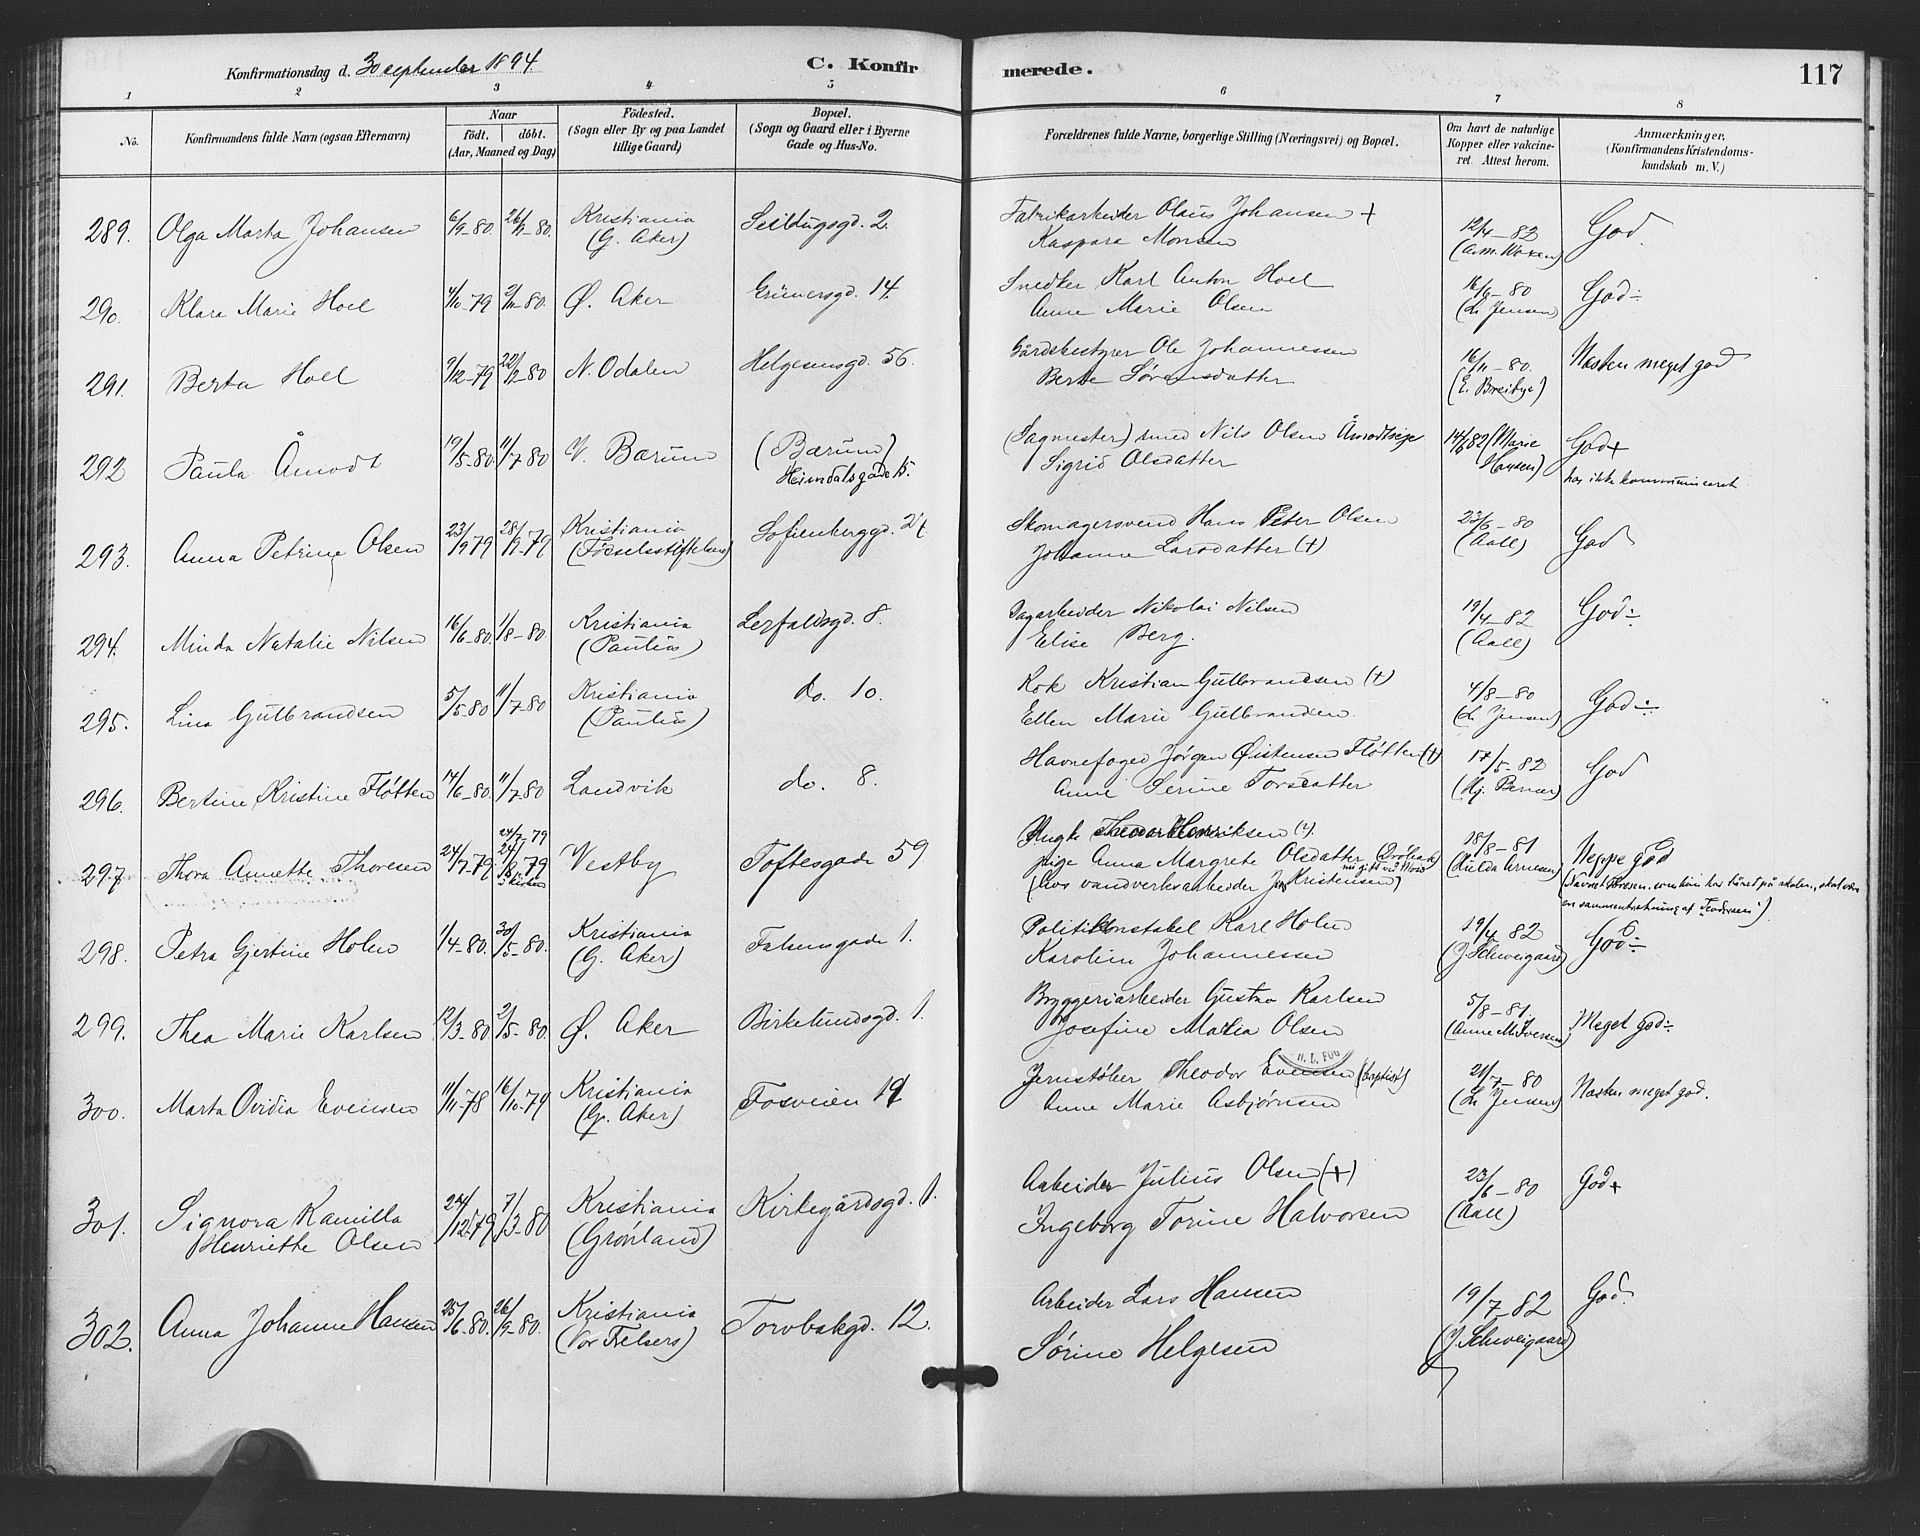 Konfirmationsdag d. 30 september 1894
C. Konfirmerede.
117
1 2 3 4 5 6 7 8
No. Konfirmandens fulde Navn (ogsaa Efternavn) Naar født. døbt. (Aar, Maaned og Dag) Födested. (Sogn eller By og paa Landet tillige Gaard) Bopæl. (Sogn og Gaard eller i Byerne Gade og Hus-No. Forældrenes fulde Navne, borgerlige Stilling (Næringsvei) og Bopæl. Om havt de naturlige Kopper eller vakcineret. Attest herom. Anmærkninger, (Konfirmandens Kristendomskundskab m. V.)
289. Olga Marta Johansen 6/9-80 26/9-80 Kristiania (G. Aker) Seildugsgd. 2. Fabrikarbeider Olaus Johansen + 12/4-82 God.
Kaspara Monsen
290. Klara Marie Hoel 4/11-79 2/11-80 Ø. Aker Grünersgd. 14. Snedker Karl Anton Hoel 16/9-80 (L. Jensen) God÷
Anne Marie Olsen
291. Berta Hoel 9/12-79 22/2-80 N. Odalen Helgesensgd. 56. Gårdsbestyrer Ole Johannessen 16/11-80. (E. Breibye) Næsten meget god
Berte Sørensdatter
292 Paula Åmodt 19/5-80. 11/7-80 V. Bærum (Bærum) Heimdalsgade 15. (Sagmester) smed Nils Olsen Åmodtseje 14/6 82 (Marie Hansen) God+
Sigrid Olsdatter har ikke kommuniceret
293. Anna Petrine Olsen 23/9 79 28/9-79 Kristiania (Fødselsstiftelsen) Sofienberggd. 21. Skomagersvend Hans Peter Olsen 23/6-80 (Aall) God
Johanne Larsdatter (+)
294. Minda Natalie Nilsen 16/6-80. 1/8-80 Kristiania (Paulus) Lerfaldsgd. 8. Dagarbeider Nikolai Nilsen 19/4-82 (Aall) God÷
Elise Berg.
295. Lina Gulbrandsen 5/5-80 11/7-80 Kristiania (Paulus) do. 10. Kok Kristian Gulbrandsen (+) 4/8-80 (L. Jensen) God÷
Ellen Marie Gulbrandsen
296. Bertine Kristine Fløtten 14/6-80. 11/7-80 Landvik do. 8. Havnefoged Jørgen Øistensen Fløtten (+) 17/5-82 God
Anne Serine Torsdatter
297. Thora Annette Thoresen 24/7-79 24/7-79 Vestby Toftesgade 59 Ungk Theodor Henriksen 18/8-81 (Hulda Arnesen) Neppe god
pige Anna Margrete Olsdatter (Drøbak) nu gift
(hos vandverksarbeider Jens Kristensen) (Navnet Thoresen, som hun har båret på skolen, skal være
en sammentrækning af "Teodorsen".)
298. Petra Gjertine Holm 1/4-80. 30/5-80. Kristiania (G. Aker) Falsensgade 1. Politikonstabel Karl Holm 19/4 82 (J. Schweigaard) God÷
Karoline Johannessen
299. Thea Marie Karlsen 12/3-80 2/5-80 Ø. Aker Birkelundsgd. 1. Bryggeriarbeider Gustav Karlsen 5/8-81. (Anne M. Iversen) Meget god÷
Josefine Maria Olsen
300. Marta Ovidia Evensen 11/11-78 16/10-79 Kristiania (G. Aker) Fosveien 19 Jernstøber Theodor Evensen (baptist) 21/7-80 (L. Jensen) Næsten meget god.
Anne Marie Asbjørnsen
301. Signora Kamilla Henriette Olsen 24/12-79 7/3-80 Kristiania (Grønland) Kirkegårdsgd. 1. Arbeider Julius Olsen (+) 23/6-80 (Aall) God+
Ingeborg Torine Halvorsen
302. Anna Johanne Hansen 25/6-80. 26/9-80. Kristiania (Vor Frelsers) Torvbakgd. 12. Arbeider Lars Hansen 19/7-82 (J. Schweigaard) God.
Sørine Helgesen